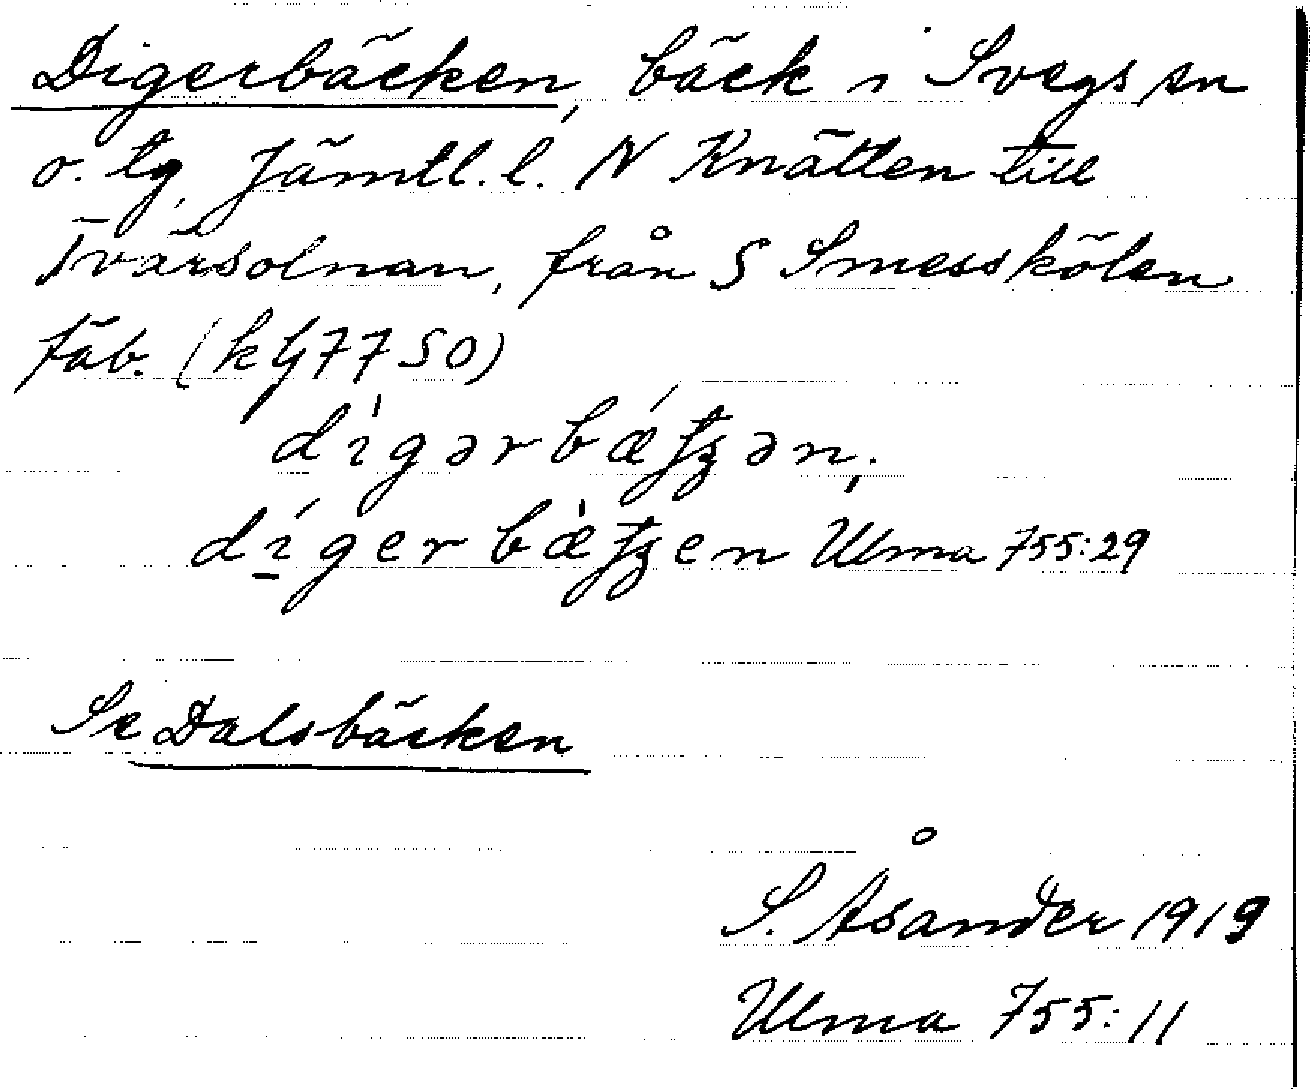 Digerbäcken, bäck i Svegs sn
o. tg, Jämtl. l. N Knätten till
Tvärsolnan, från S Smesskölen
fäb. (k G7750)
di̍gərbǽʈʐən,
dígerbæ̍ʈʐen Ulma 755:29
Se Dalsbäcken
S. Åsander 1919
Ulma 755:11